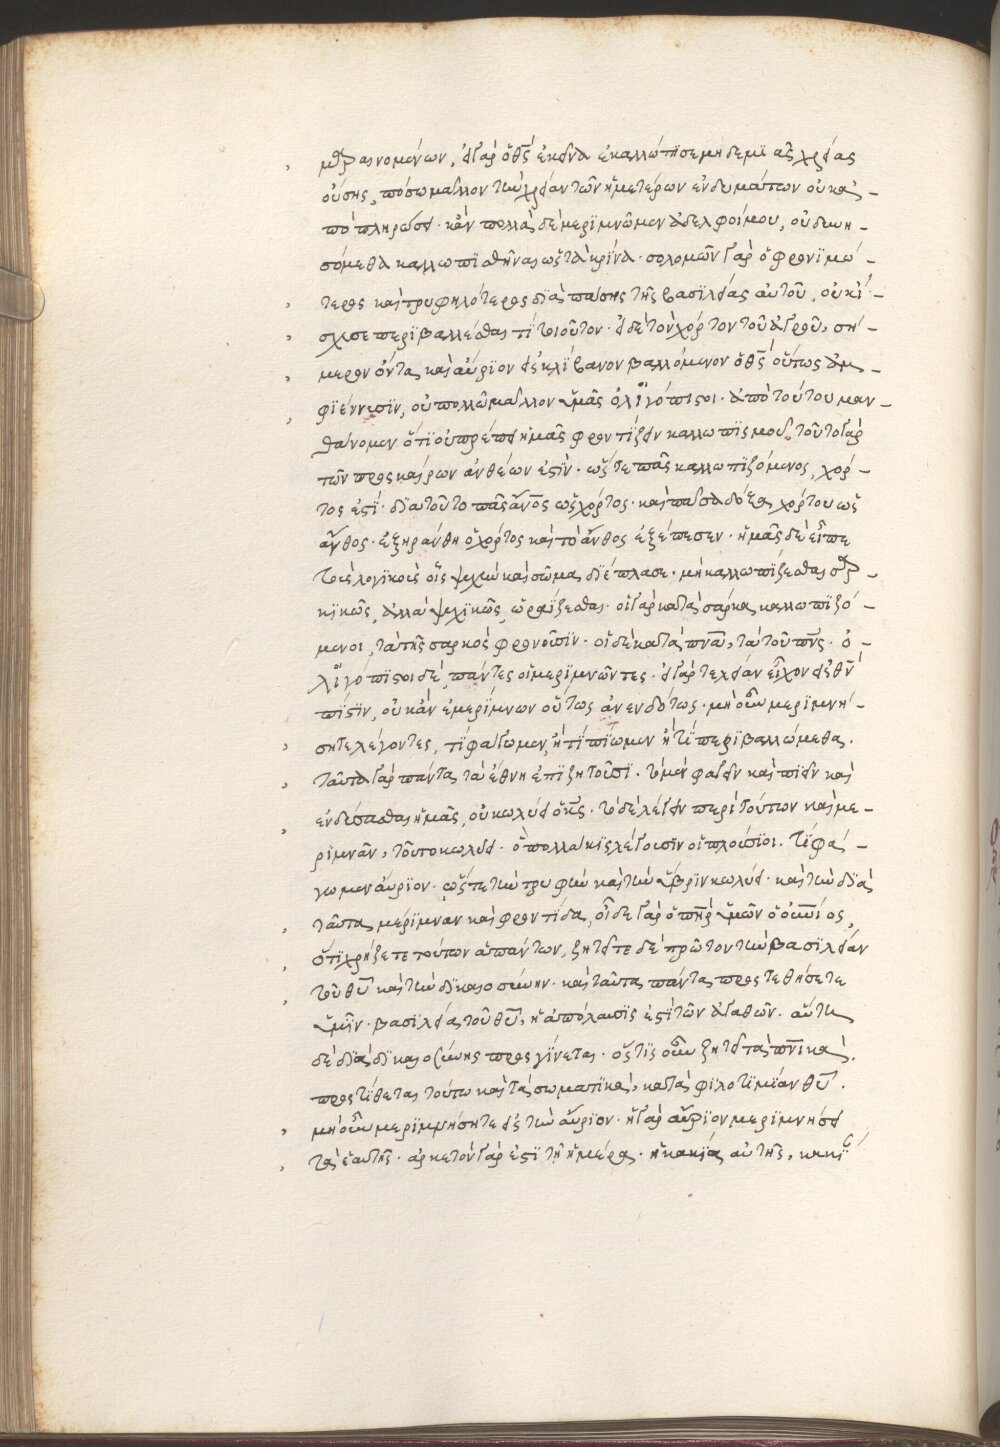 μαραινομένων, εἰ γὰρ ὁ θς ἐκεῖνα ἐκαλλώπισε μηδεμιᾶς χρείας
οὔσης, πόσω μᾶλλον τὴν χρείαν τῶν ἡμετέρων ἐνδυμάτων οὐκ ἀ-
ποπληρώσει· κἂν πολλὰ δὲ μεριμνῶμεν ἀδελφοί μου, οὐ δυνη-
σόμεθα καλλωπισθῆναι ὡς τὰ κρίνα· σολομῶν γὰρ ὁ φρονιμώ-
τερος καὶ τρυφηλότερος διὰ πάσης τῆς βασιλείας αὐτοῦ, οὐκ ἴ-
σχυσε περιβαλλέσθαι τί τοιοῦτον· εἰ δὲ τὸν χόρτον τοῦ ἀγροῦ, σή-
μερον ὄντα καὶ αὔριον εἰς κλίβανον βαλλόμενον ὁ θς οὕτως ἀμ-
φιέννυσιν, οὐ πολλῶ μᾶλλον ὑμᾶς ὀλιγόπιστοι· ἀπὸ τούτου μαν-
θάνομεν ὅτι οὐ πρέπει ἡμᾶς φροντίζειν καλλωπισμοῦ, τοῦτο γὰρ
τῶν προσκαίρων ἀνθέων ἐστὶν· ὥστε πᾶς καλλωπιζόμενος, χόρ-
τος ἐστί· διὰ τοῦτο πᾶς ἄνος ὡς χόρτος· καὶ πᾶσα δόξα χόρτου ὡς
ἄνθος· ἐξηράνθη ὁ χόρτος καὶ τὸ ἄνθος ἐξέπεσεν· ἡμᾶς δὲ εἶπε
τοὺς λογικοὺς οἷς ψυχὴν καὶ σῶμα διέπλασε· μὴ καλλωπίζεσθαι σαρ-
κικῶς, ἀλλὰ ψυχικῶς ὡραΐζεσθαι· οἱ γὰρ κατὰ σάρκα καλλωπιζό-
μενοι, τὰ τῆς σαρκὸς φρονοῦσιν· οἱ δὲ κατὰ πνα, τὰ τοῦ πνς· ὀ-
λιγόπιστοι δὲ, πάντες οἱ μεριμνῶντες· εἰ γὰρ τελείαν εἶχον εἰς θν
πίστιν, οὐκ ἂν ἐμερίμνων οὕτως ἀνενδότως· μὴ οὖν μεριμνή-
σητε λέγοντες, τί φάγωμεν, ἢ τί πίωμεν ἢ τί περιβαλλώμεθα.
ταῦτα γὰρ πάντα τὰ ἔθνη ἐπιζητοῦσι· τὸ μὲν φαγεῖν καὶ πιεῖν καὶ
ἐνδύσασθαι ἡμᾶς, οὐ κωλύει ὁ κς· τὸ δὲ λέγειν περὶ τούτων καὶ με-
ριμνᾶν, τοῦτο κωλύει· ὃ πολλάκις λέγουσιν οἱ πλούσιοι· τί φά-
γωμεν αὔριον· ὥστε τὴν τρυφὴν καὶ τὴν ὕβριν κωλύει· καὶ τὴν διὰ
ταῦτα μέριμναν καὶ φροντίδα, οἶδε γὰρ ὁ πηρ ὑμῶν ὁ οὐνιος,
ὅτι χρήζετε τούτων ἁπάντων, ζητεῖτε δὲ πρῶτον τὴν βασιλείαν
τοῦ θυ καὶ τὴν δικαιοσύνην· καὶ ταῦτα πάντα προστεθήσεται
ὑμῖν· βασιλεία τοῦ θυ, ἡ ἀπόλαυσις ἐστὶ τῶν ἀγαθῶν· αὕτη
δὲ διὰ δικαιοσύνης προσγίνεται· ὅστις οὖν ζητεῖ τὰ πνικὰ.
προστίθεται τούτω καὶ τὰ σωματικὰ, κατὰ φιλοτιμίαν θυ.
μὴ οὖν μεριμνήσητε εἰς τὴν αὔριον· ἡ γὰρ αὔριον μεριμνήσει
τὰ ἑαυτῆς· ἀρκετὸν γὰρ ἐστὶ τῇ ἡμέρα· ἡ κακία αὐτῆς,